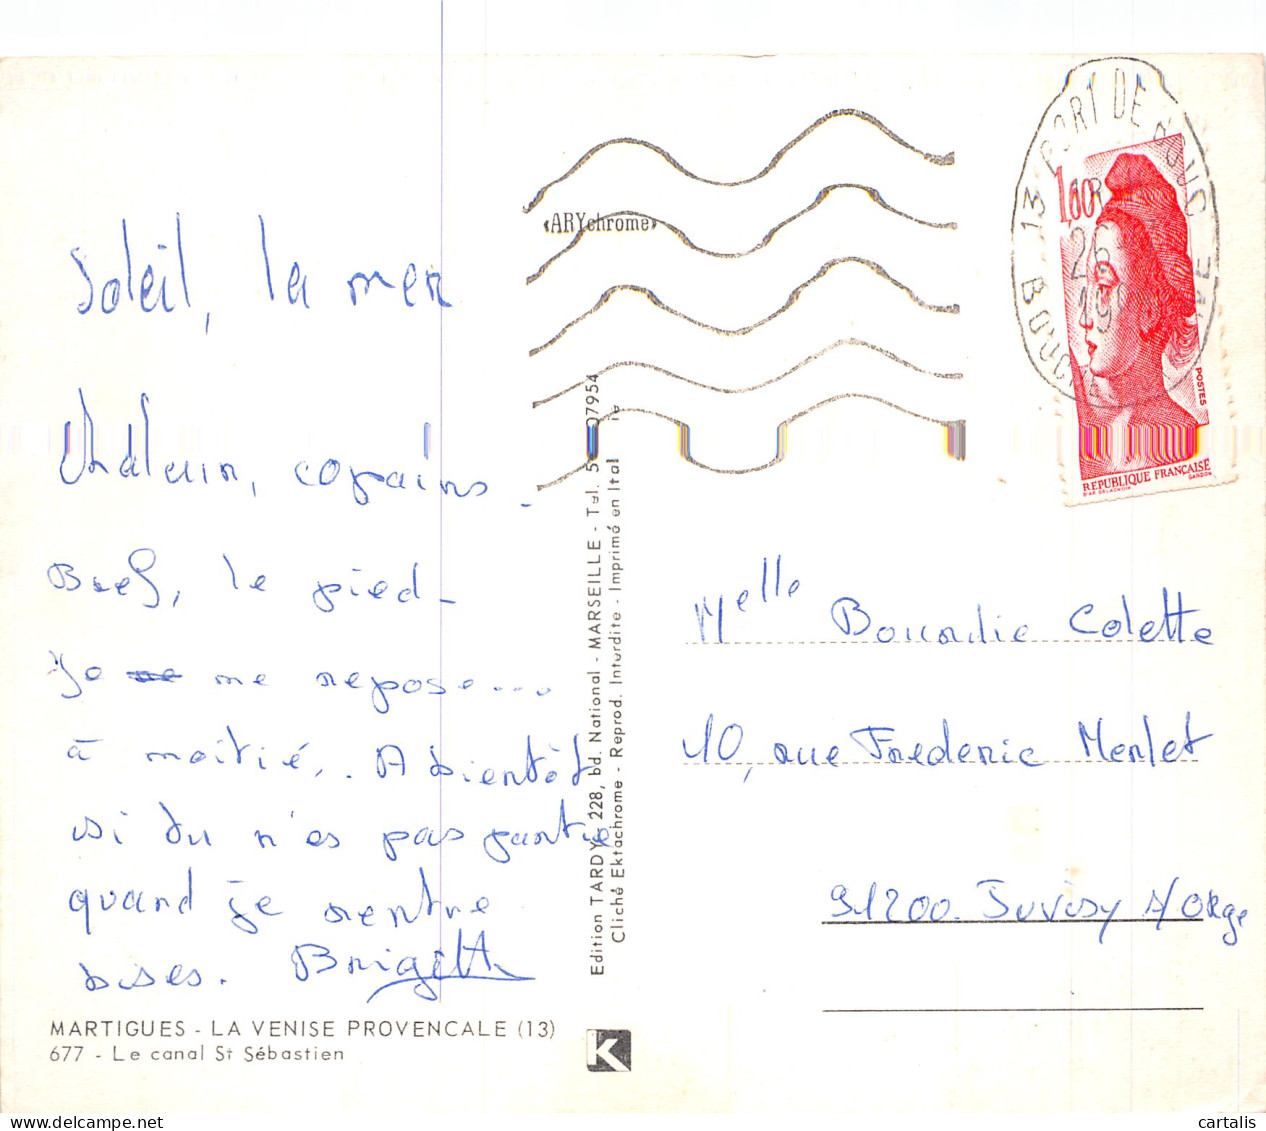 Soleil, la mer
chaleur, copains.
Bref, le pied_
Je me repose...
à moitié... A bientôt
si tu n'es pas partie
quand je rentre
bises. Brigitte
MARTIGUES - LA VENISE PROVENCALE (13)
677 - Le canal St Sébastien
Edition TARDY - 228, bd. National - MARSEILLE - Tél. 5 07954
Cliché Ektachrome - Reprod. Interdite - Imprimé en Ital ie
«ARYchrome»
K
13 PORT DE BOUC
26
19
1,60
POSTES
REPUBLIQUE FRANÇAISE
D'AP. DELACROIX
GANDON
Melle Bourdie Colette
10, rue Frederic Merlet
91200. Juvisy s/Orge
cartalis